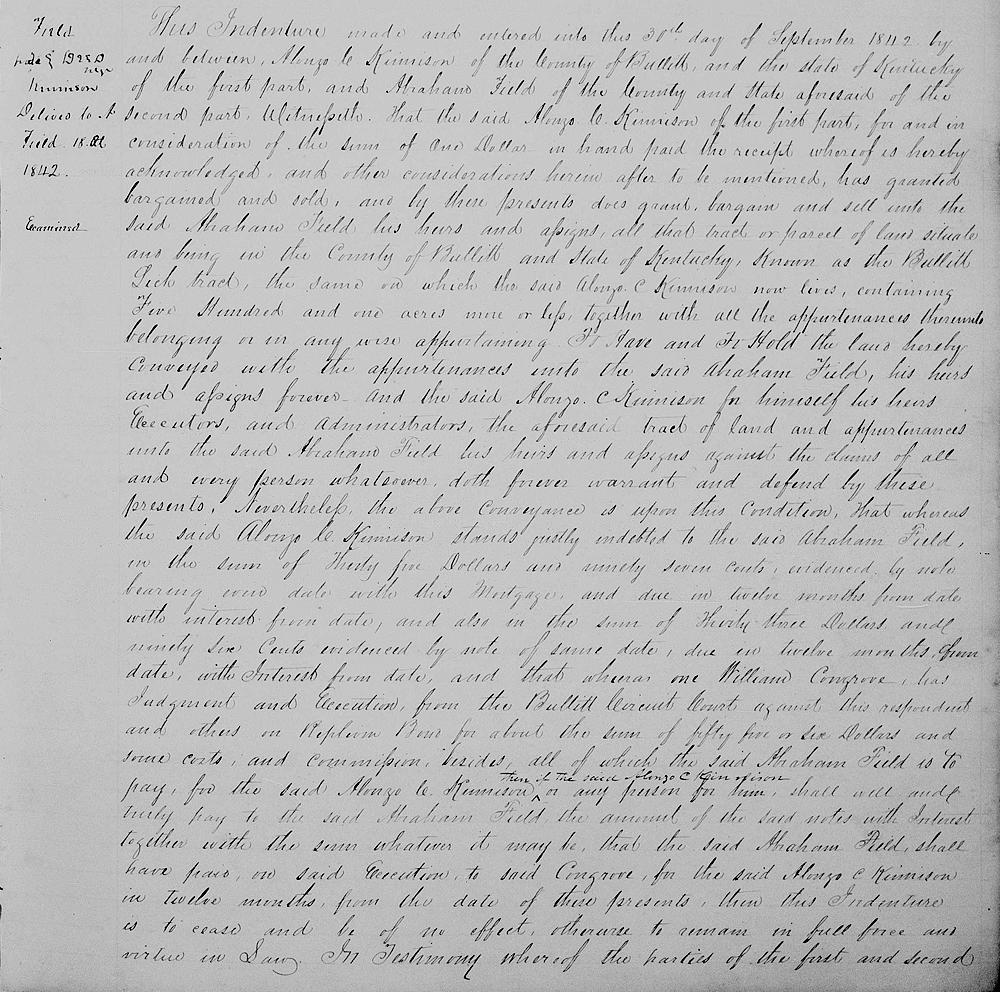 Field
Kinnison
Delived to A
Field 18. Oct
1842.
Examined
This Indenture made and entered into this 30th day of September 1842 by
and between, Alonzo C Kinnison of the County of Bullitt, and the state of Kentucky
of the first part, and Abraham Field of the County and State aforesaid of the
second part, Witnesseth. That the said Alonzo C. Kinnison of the first part, for and in
consideration of the sum of One Dollar in hand paid the receipt whereof is hereby
acknowledged, and other considerations herein after to be mentioned, has granted
bargained and sold, and by these presents does grant, bargain and sell unto the
said Abraham Field his heirs and assigns, all that tract or parcel of land situate
and being in the County of Bullitt and State of Kentucky, Known as the Bullitt
Lick tract, the same on which the said Alonzo. C Kinnison now lives, containing
Five Hundred and one acres more or less, together with all the appurtenances thereunto
belonging or in any wise appertaining. To Have and To Hold the land hereby
conveyed with the appurtenances unto the said Abraham Field, his heirs
and assigns forever- and the said Alonzo. C Kinnison for himself his heirs
Executors, and Administrators, the aforesaid tract of land and appurtenances
unto the said Abraham Field his heirs and assigns against the claims of all
and every person whatsoever, doth forever warrant and defend by these
presents, Nevertheless, the above Conveyance is upon this Condition, that whereas
the said Alonzo C. Kinnison stands justly indebted to the said Abraham Field,
in the sum of Thirty five Dollars and ninety seven cents, evidenced by note
bearing even date with this Mortgage, and due in twelve months from date
with interest from date, and also in the sum of Thirty three Dollars and
ninety six Cents evidenced by note of same date, due in twelve months, from
date, with Interest from date, and that wheras one William Congrove, has
Judgment and Execution, from the Bullitt Circuit Court against this respondent
and others on Replevin Bond for about the sum of fifty five or six Dollars and
some costs, and commission, besides, all of which the said Abraham Field is to
then if the said Alonzo C Kinnison
pay, for the said Alonzo C. Kinnison ^ or any person for him, shall well and
truly pay to the said Abraham Field, the amount of the said notes with Interest
together with the sum whatever it may be, that the said Abraham Field, shall
have paid, on said Execution, to said Congrove, for the said Alonzo C Kinnison
in twelve months, from the date of these presents, then this Indenture
is to cease and be of no effect, otherwise to remain in full force and
virtue in Law. In Testimony whereof the parties of the first and second